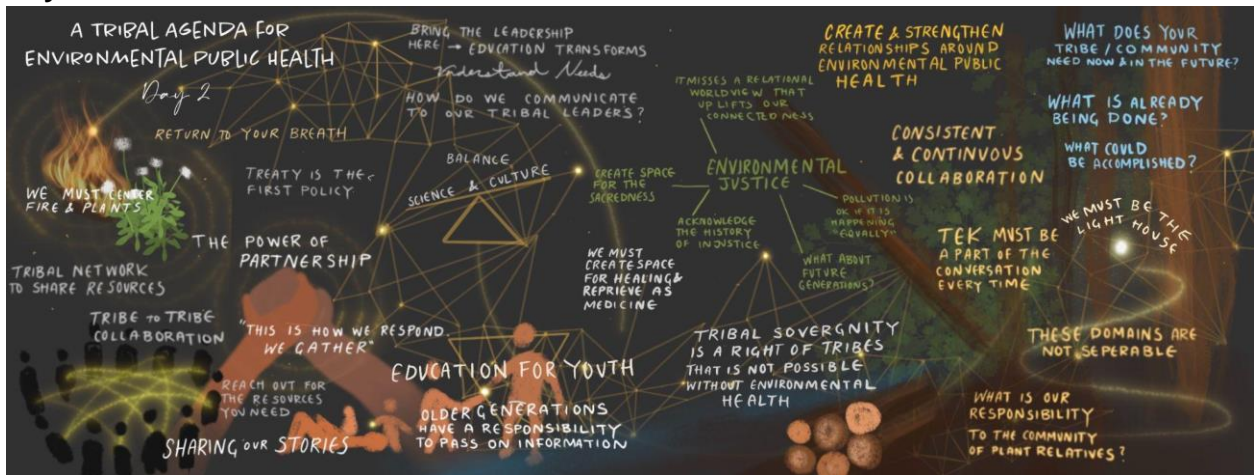 A TRIBAL AGENDA FOR
ENVIRONMENTAL PUBLIC HEALTH
Day 2
RETURN TO YOUR BREATH
WE MUST CENTER
FIRE & PLANTS
TREATY IS THE
FIRST POLICY
THE POWER OF
PARTNERSHIP
TRIBAL NETWORK
TO SHARE RESOURCES
TRIBE TO TRIBE
COLLABORATION
"THIS IS HOW WE RESPOND.
WE GATHER"
REACH OUT FOR
THE RESOURCES
YOU NEED
SHARING OUR STORIES
BRING THE LEADERSHIP
HERE → EDUCATION TRANSFORMS
Understand Needs
HOW DO WE COMMUNICATE
TO OUR TRIBAL LEADERS?
BALANCE
SCIENCE & CULTURE
EDUCATION FOR YOUTH
OLDER GENERATIONS
HAVE A RESPONSIBILITY
TO PASS ON INFORMATION
IT MISSES A RELATIONAL
WORLDVIEW THAT
UPLIFTS OUR
CONNECTEDNESS
CREATE SPACE
FOR THE
SACREDNESS
ENVIRONMENTAL
JUSTICE
ACKNOWLEDGE
THE HISTORY
OF INJUSTICE
POLLUTION IS
OK IF IT IS
HAPPENING
"EQUALLY"
WHAT ABOUT
FUTURE
GENERATIONS?
WE MUST
CREATE SPACE
FOR HEALING &
REPRIEVE AS
MEDICINE
TRIBAL SOVERGNITY
IS A RIGHT OF TRIBES
THAT IS NOT POSSIBLE
WITHOUT ENVIRONMENTAL
HEALTH
CREATE & STRENGTHEN
RELATIONSHIPS AROUND
ENVIRONMENTAL PUBLIC
HEALTH
CONSISTENT
& CONTINUOUS
COLLABORATION
TEK MUST BE
A PART OF THE
CONVERSATION
EVERY TIME
WHAT DOES YOUR
TRIBE / COMMUNITY
NEED NOW & IN THE FUTURE?
WHAT IS ALREADY
BEING DONE?
WHAT COULD
BE ACCOMPLISHED?
WE MUST BE THE
LIGHT HOUSE
THESE DOMAINS ARE
NOT SEPERABLE
WHAT IS OUR
RESPONSIBILITY
TO THE COMMUNITY
OF PLANT RELATIVES?